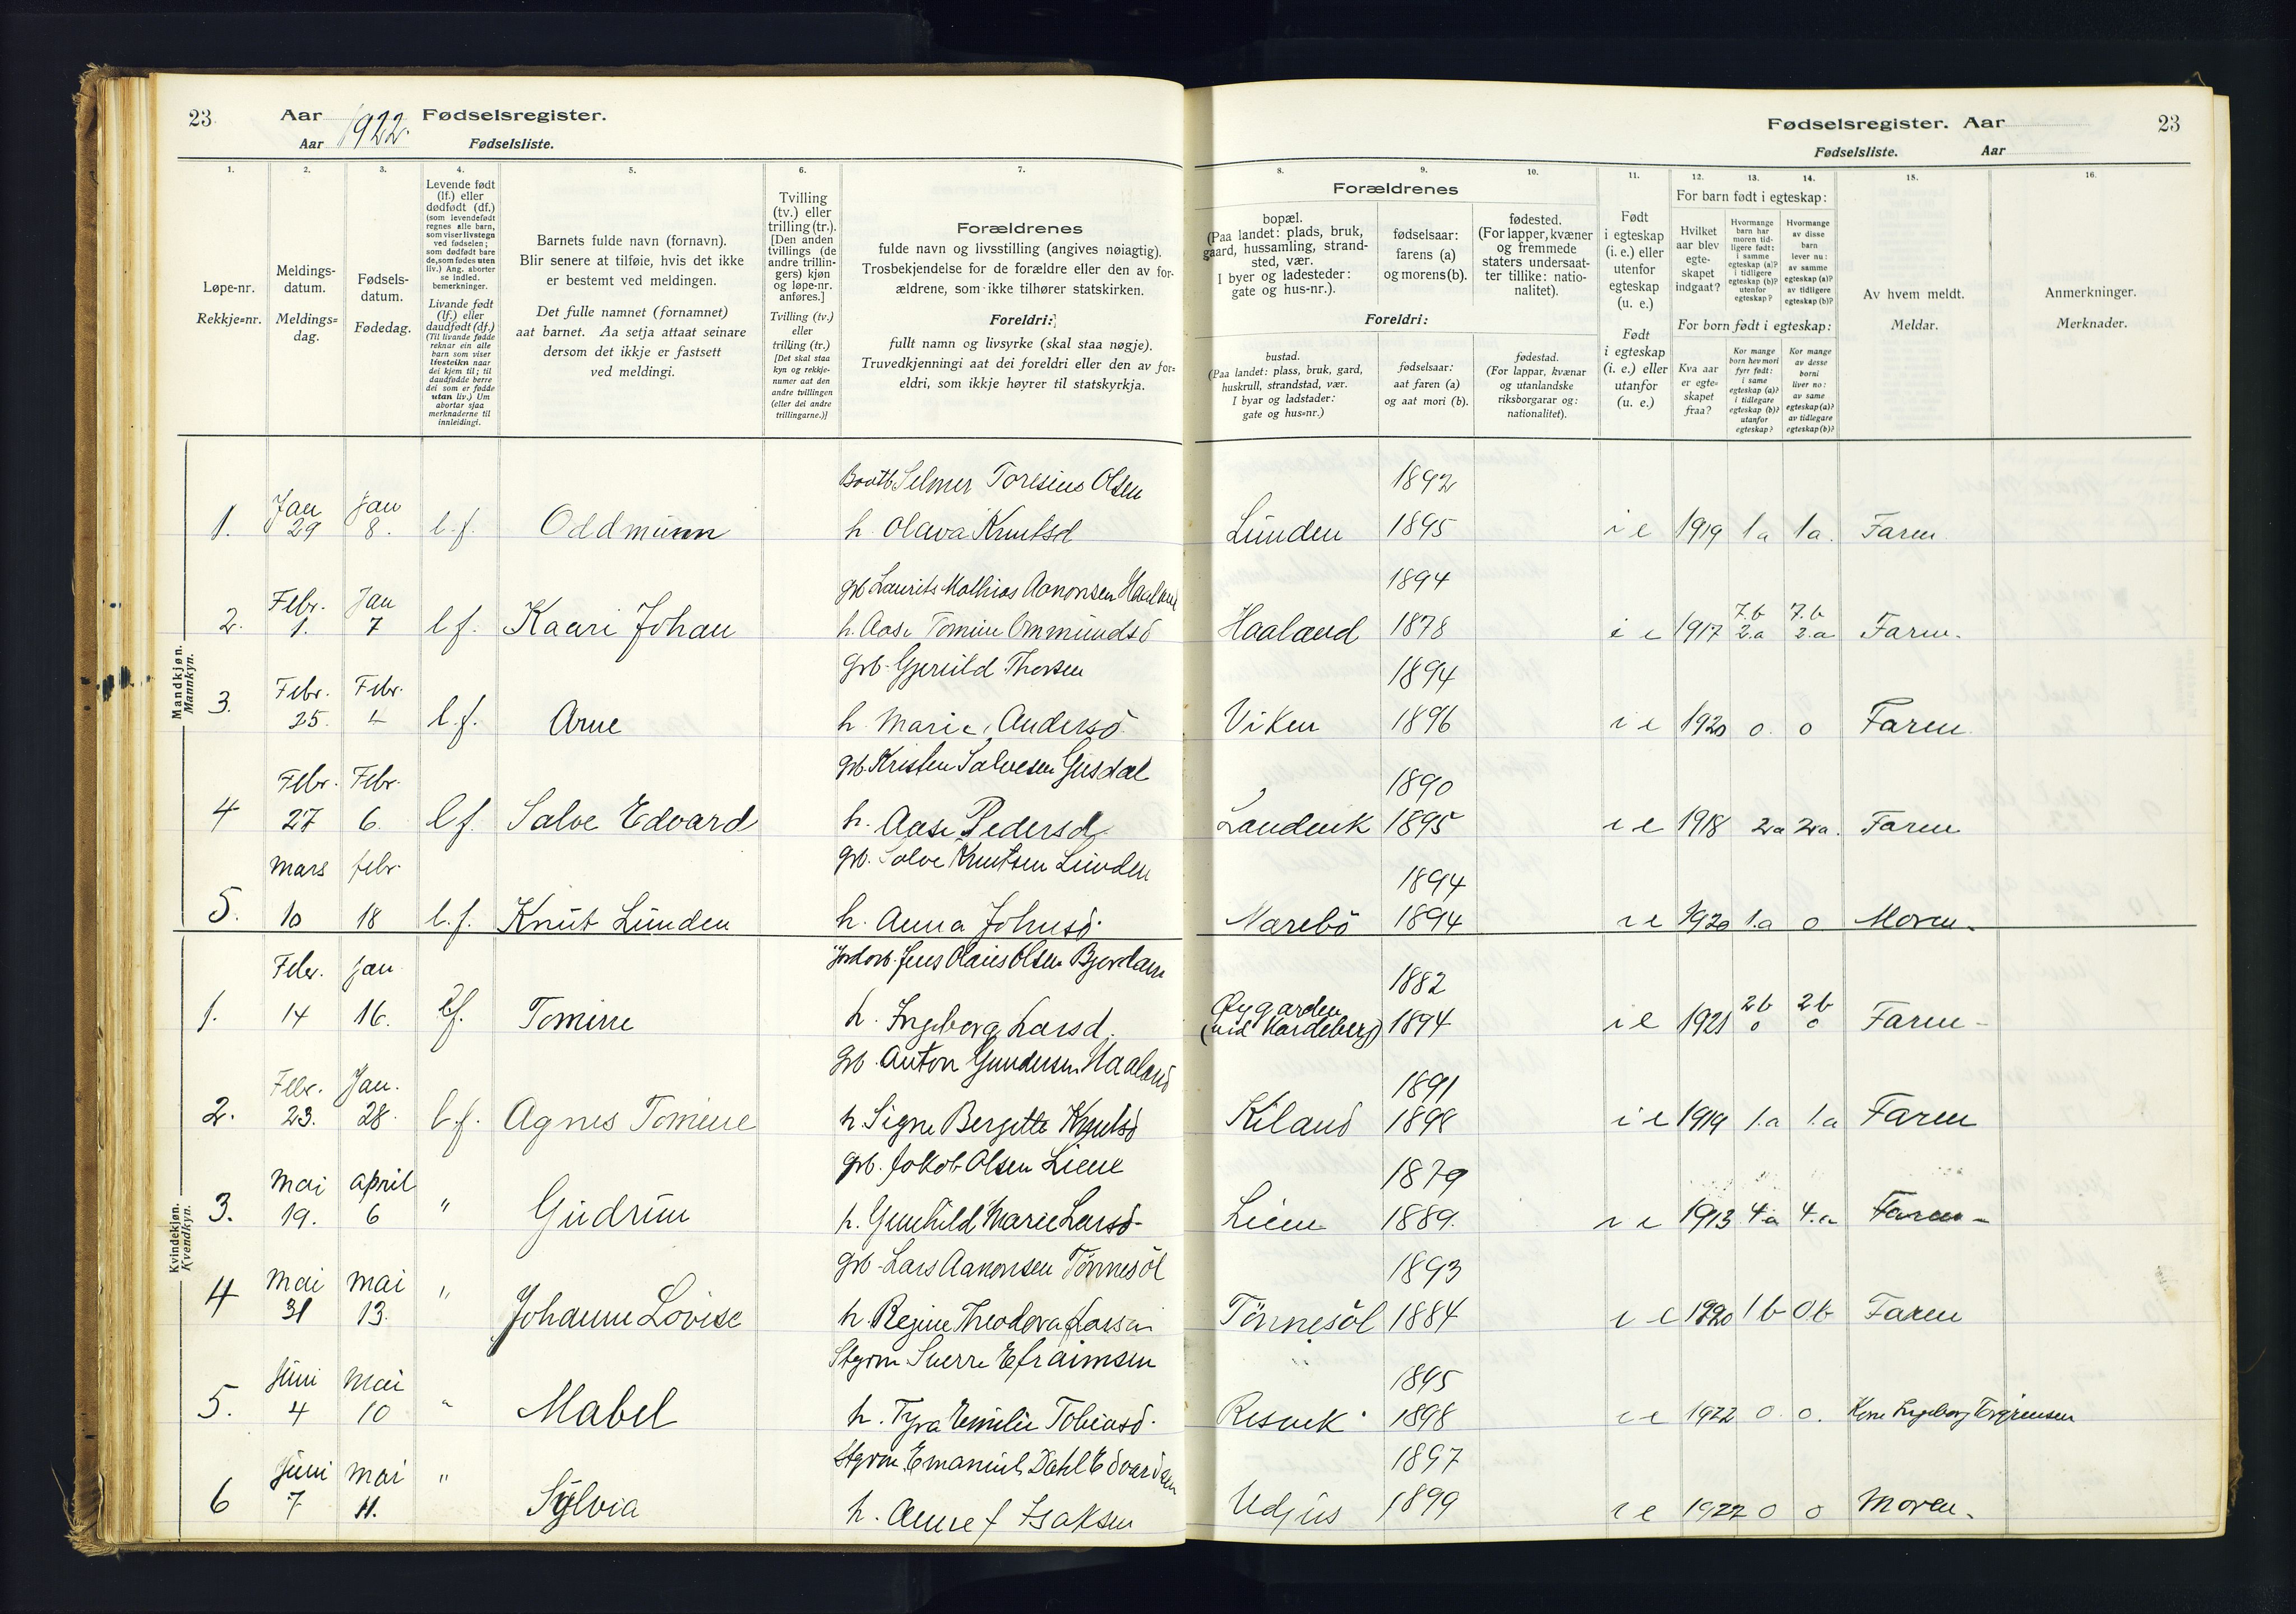 23
Aar 1922. Fødselsregister.
Aar Fødselsliste.
Fødselsregister. Aar
23
Fødselsliste. Aar
1.
2.
3.
4.
5.
6.
7.
8.
9.
10.
11.
12.
13.
14.
15.
16.
Løpe-nr.
Rekkje=nr.
Meldings-
datum.
Meldings=
dag.
Fødsels-
datum.
Fødedag.
Levende født
(lf.) eller
dødfødt (df.)
(som levendefødt
regnes alle barn,
som viser livstegn
ved fødselen;
som dødfødt bare
de, som fødes uten
liv.) Ang. aborter
se indled.
bemerkninger.
Livande født
(lf.) eller
daudfødt (df.)
(Til livande fødde
reknar ein alle
barn som viser
livsteikn naar
dei kjem til; til
daudfødde berre
dei som er fødde
utan liv.) Um
abortar sjaa
merknaderne til
innleidingi.
Barnets fulde navn (fornavn).
Blir senere at tilføie, hvis det ikke
er bestemt ved meldingen.
Det fulle namnet (fornamnet)
aat barnet. Aa setja attaat seinare
dersom det ikkje er fastsett
ved meldingi.
Tvilling
(tv.) eller
trilling (tr.).
[Den anden
tvillings (de
andre trillin-
gers) kjøn
og løpe-nr.
anføres.]
Tvilling (tv.)
eller
trilling (tr.)
[Det skal staa
kyn og rekkje-
numer aat den
andre tvillingen
(eller dei andre
trillingarne.)]
Forældrenes
fulde navn og livsstilling (angives nøiagtig).
Trosbekjendelse for de forældre eller den av for-
ældrene, som ikke tilhører statskirken.
Foreldri:
fullt namn og livsyrke (skal staa nøgje).
Truvedkjenningi aat dei foreldri eller den av for=
eldri, som ikkje høyrer til statskyrkja.
Forældrenes
bopæl.
(Paa landet: plads, bruk,
gaard, hussamling, strand-
sted, vær.
I byer og ladesteder:
gate og hus-nr.).
fødselsaar:
farens (a)
og morens (b).
fødested.
(For lapper, kvæner
og fremmede
staters undersaat-
ter tillike: natio-
nalitet).
Foreldri:
bustad.
(Paa landet: plass, bruk, gard,
huskrull, strandstad, vær.
I byar og ladstader:
gate og hus=nr.)
fødselsaar:
aat faren (a)
og aat mori (b).
fødestad.
(For lappar, kvænar
og utanlandske
riksborgarar og:
nationalitet).
Født
i egteskap
(i. e.) eller
utenfor
egteskap
(u. e.)
Født
i egteskap
(i. e.) eller
utanfor
(u. e.)
For barn født i egteskap:
Hvilket
aar blev
egte-
skapet
indgaat?
Hvormange
barn har
moren tid-
ligere født:
i samme
egteskap (a)?
i tidligere
egteskap (b)?
utenfor
egteskap?
Hvormange
av disse
barn
lever nu:
av samme
egteskap (a)?
av tidligere
egteskap (b)?
For born født i egteskap:
Kva aar
er egte=
skapet
fraa?
Kor mange
born hev mori
fyrr født:
i same
egteskap (a)?
i tidlegare
egteskap (b)?
utanfor
egteskap?
Kor mange
av desse
borni
liver no:
av same
egteskap (a)?
av tidlegare
egteskap (b)?
Av hvem meldt.
Meldar.
Anmerkninger.
Merknader.
Mandkjøn.
Mannkyn.
Selmer Toresius Olsen 1892
1. Jan 29 Jan 8. l.f. Oddmunn h. Olava Knutsd Lunden 1895 i e 1919 1a 1a. Faren.
Gb. Laurits Mathias Aanonsen Haaland 1894
2. Febr. 1. Jan 7 l f. Kaari Johan h. Aase Tomine Ommundsd Haaland 1878 i e 1917 7.b 2.a 7.b 2.a Faren.
Gb. Thorsen 1894
3. Febr. 25. Febr. l.f. Arne h. Marie Andersd. Viken 1896 i e 1920 0. 0 Faren
Gb. Kristen Salvesen Gusdal 1890
4 Febr. 27 Febr. 6. l f. Salve Edvard h. Aase Pedersd Landvik 1895 i e 1918 2a 2a. Faren
Gb. Salve Knutsen Lunden 1894
5. Mars 10 febr. 18 l.f. Knut Lunden h. Anna Johnsd. Narebö 1894 i e 1920 1.a 0 Moren.
Kvindekjøn.
Kvendkyn.
Jens Olaus Olsen 1882
1. Febr. 14 Jan 16. lf. Tomine h. Ingeborg Larsd. Øygarden 1894 i e 1921 2b 0 2b 0 Faren-
Gb. Anton Gundersen Haaland 1891
2. Febr. 23. Jan. 28. l.f. Agnes Tomine h. Signe Bergitte Knutsd Kiland 1898 i e 1919 1.a 1.a Faren
Gb. Jakob Olsen Liene 1879
3. Mai 19. april 6 " Gudrun h. Gunhild Marie Larsd. Liene 1889. i e 1913 4.a 4.a Faren-
Gb. Lars Aanonsen Tönnesöl 1893
4 Mai 31 Mai 13. " Johanne Lovise h Regine Theodora Tönnesöl 1884 i e 1920 1 b 0.b Faren
Styrm Sverre Efraimsen 1895
5. Juni 4 Mai 10 " Mabel h. Tyra Emilie Tobiasd. Resvik 1898 i e 1922 0. 0. Kone Ingeborg
Styrm. Emanuel Dahl Edvardsen 1897
6 Juni 7 Mai 11. " Sylvia h. Isaksen Udjus 1899 i e 1922 0 0 Moren.